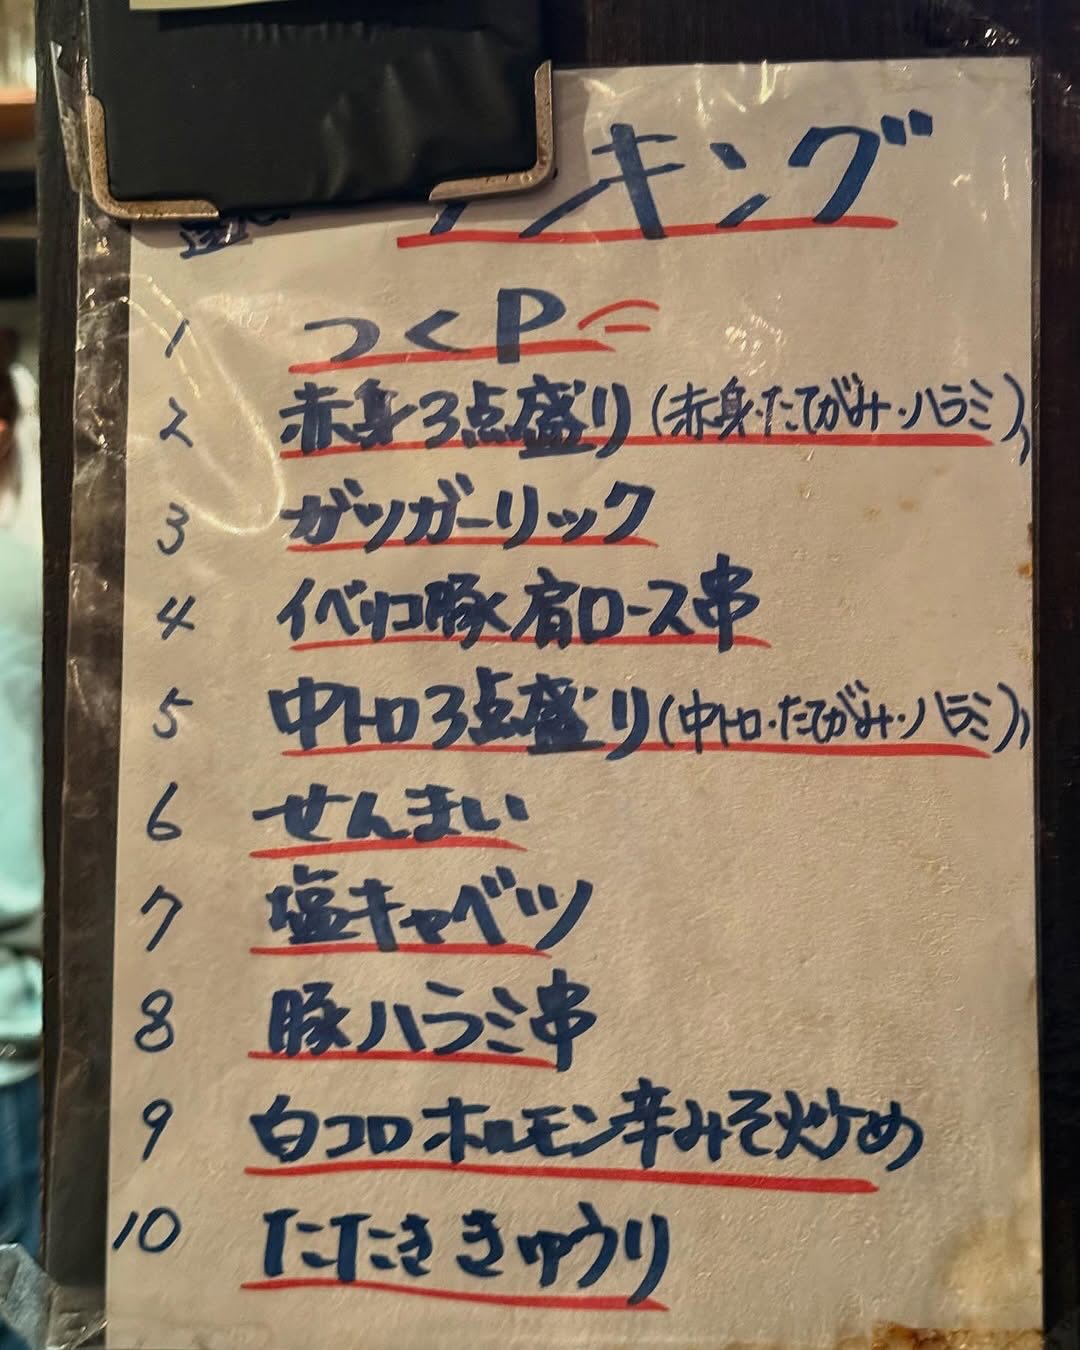 ンキング
1 つくP
2 赤身3点盛り(赤身・たてがみ・ハラミ)
3 ガツガーリック
4 イベリコ豚肩ロース串
5 中トロ3点盛り(中トロ・たてがみ・ハラミ)
6 せんまい
7 塩キャベツ
8 豚ハラミ串
9 白コロホルモン辛みそ炒め
10 たたききゅうり